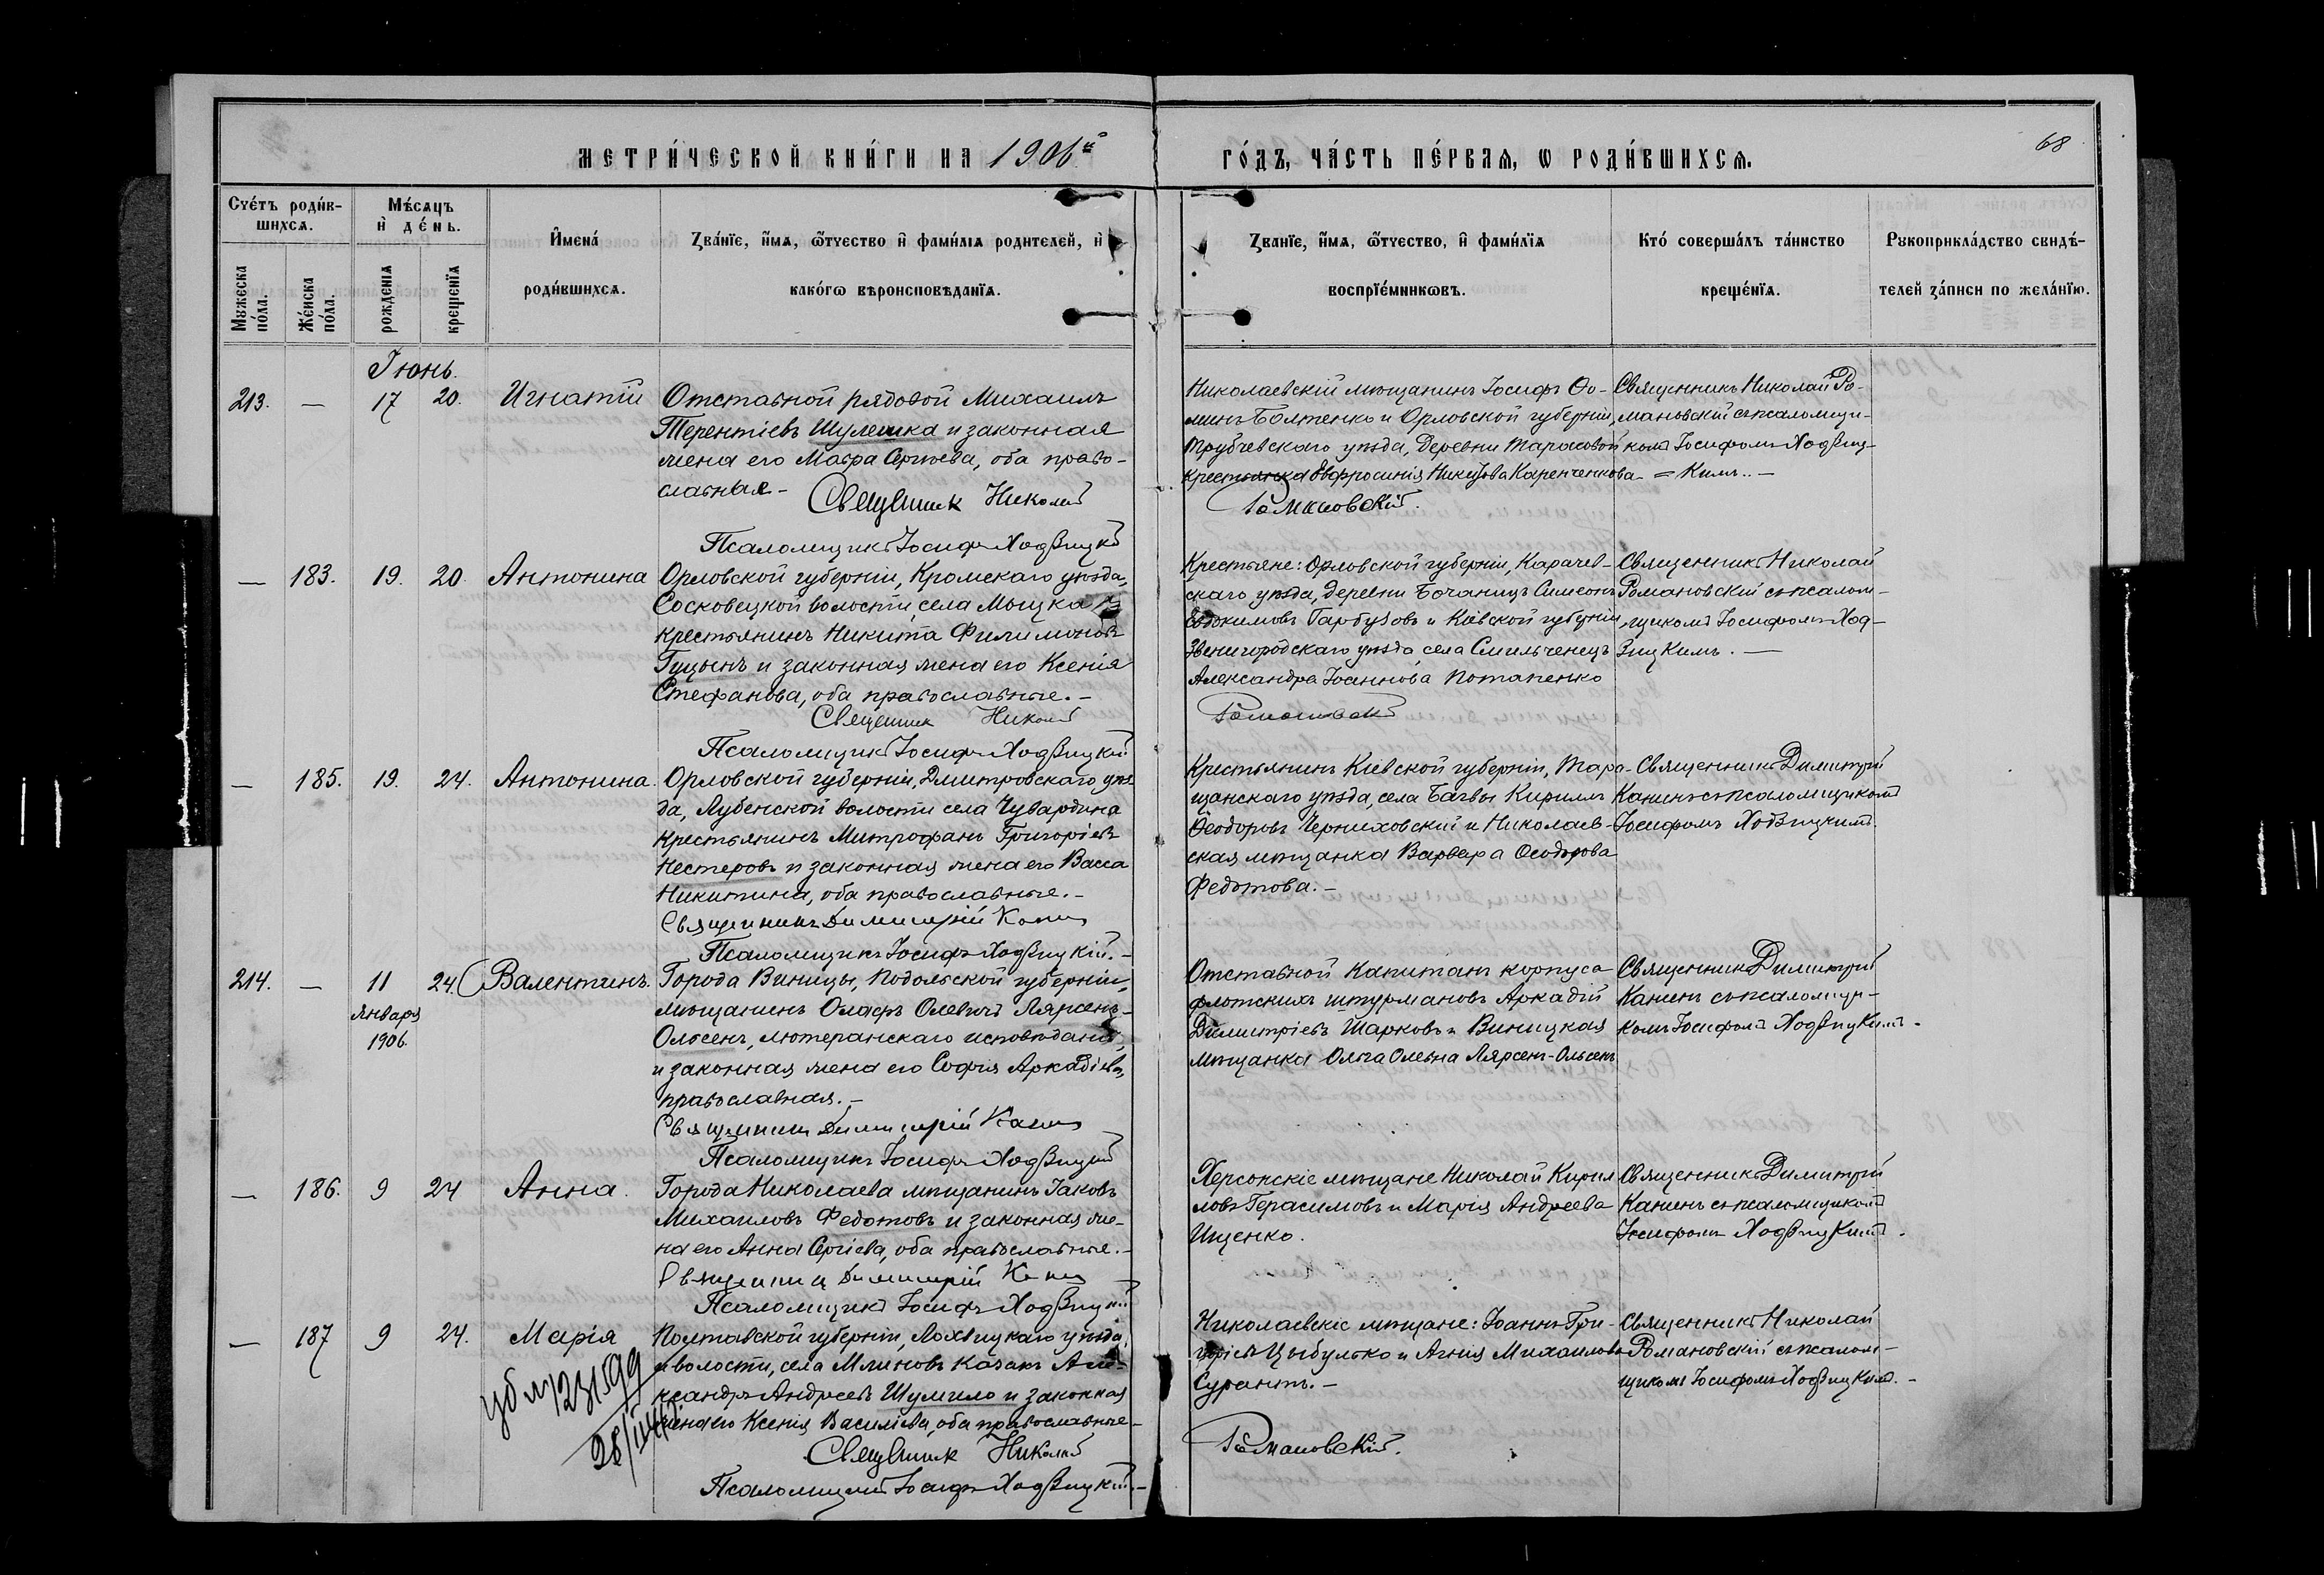 МЕТРИ́ЧЕСКОЙ КНИ́ГИ НА 1906й
ГО́ДЪ, ЧА́СТЬ ПЕ́РВАЯ, Ѡ РОДИ́ВШИХСЯ.
68
Сче́тъ роди́в-
шихся.
Мѣ́сяцъ
и де́нь.
Имена́
роди́вшихся.
Зва́нїе, и́мя, ѻ́тчество и фами́лїя родителей, и
како́гѡ вѣроисповѣданїя.
Зва́нїе, и́мя, ѻ́тчество, и фами́лїя
воспрїе́мникѡвъ.
Кто́ соверша́лъ та́инство
креще́нїя.
Рукоприкла́дство свидѣ́-
телей за́писи по жела́нїю.
Мужеска
по́ла.
Же́нска
по́ла.
рожденїя
крещенїя
Іюнь.
213. — 17 20. Игнатій
Отставной рядовой Михаилъ
Терентіевъ Шулешка и законная
жена его Мавра Сергѣева, оба право-
славные.-
Священник Николай
Романовскій.
Псаломщикъ Іосифъ Ходзицкій
Николаевскій мѣщанинъ Іосифъ Ѳо-
минъ Болтенко и Орловской губерніи,
Трубчевскаго уѣзда, Деревни Тарасовой
крестьянка Евфросинія
Священникъ Николай Ро-
мановскій съ псаломщи-
комъ Іосифомъ Ходзиц-
= кимъ. —
— 183. 19. 20. Антонина
Орловской губерніи, Кромскаго уѣзда,
Сосковецкой волости, села Мыцка
крестьянинъ Никита Филимоновъ
Гуцынъ и законная жена его Ксенія
Стефанова, оба православные. -
Священник Николай
Романовскій
Псаломщикъ Іосифъ Ходзицкій
Крестьяне: Орловской губерніи, Карачев-
скаго уѣзда, деревни Бочаницъ Симеонъ
Евдокимовъ Гарбузовъ и Кіевской губерніи,
Звенигородскаго уѣзда, села Смильченецъ
Александра Іоаннова Потапенко
Священникъ Николай
Романовскій съ псалом-
щикомъ Іосифомъ Ход-
зицкимъ. —
— 185. 19. 24. Антонина.
Орловской губерніи, Дмитровскаго уѣз-
да, Лубенской волости села Чувардина
крестьянинъ Митрофанъ Григоріевъ
Нестеровъ и законная жена его Васса
Никитина, оба православные. -
Священникъ Димитрій Канинъ
Псаломщикъ Іосифъ Ходзицкій. -
Крестьянинъ Кіевской губерніи, Тара-
щанскаго уѣзда, села Багвы Кириллъ
Ѳеодоровъ Черниховскій и Николаев-
ская мѣщанка Варвара Ѳеодорова
Федотова. -
Священникъ Димитрій
Канинъ съ псаломщикомъ
Іосифомъ Ходзицкимъ.
214. — 11 24. Валентинъ.
Января
1906.
Города Виницы, Подольской губерніи,
мѣщанинъ Олафъ Олевичъ Лярсенъ-
Ольсенъ, лютеранскаго исповѣданія,
и законная жена его Софія Аркадіева,
православная. -
Священникъ Димитрій Канинъ
Псаломщикъ Іосифъ Ходзицкій
Отставной Капитанъ корпуса
флотскихъ штурмановъ Аркадій
Димитріевъ Шарковъ и Виницкая
мѣщанка Ольга Олевна Лярсенъ-Ольсенъ
Священникъ Димитрій
Канинъ съ псаломщи-
комъ Іосифомъ Ходзицкимъ. -
— 186. 9 24 Анна.
Города Николаева мѣщанинъ Іаковъ
Михаиловъ Федотовъ и законная же-
на его Анна Сергіева, оба православные. -
Священникъ Димитрій Канинъ
Псаломщикъ Іосифъ Ходзицкій
Херсонскіе мѣщане Николай Кирил
ловъ Герасимовъ и Марія Андреева
Ищенко.
Священникъ Димитрій
Канинъ съ псаломщикомъ
Іосифомъ Ходзицкимъ.
— 187 9 24. Марія
Полтавской губерніи, Лохвицкаго уѣзда,
и волости, села Млиновъ казакъ Але-
ксандръ Андреевъ Шумило и законная
жена его Ксенія Василіева, оба православные -
Священник Николай
Романовскій.
Псаломщикъ Іосифъ Ходзицкій. -
Николаевскіе мѣщане: Іоаннъ Гри-
горіевъ Цыбулько и Агнія Михаилова
Сурантъ. -
Священникъ Николай
Романовскій съ псалом-
щикомъ Іосифомъ Ходзицкимъ. -